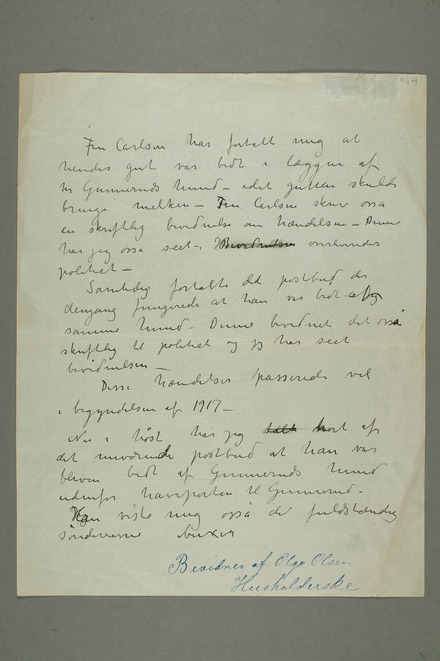 Fru Carlsen har fortalt mig at
hendes gut var bidt i læggen af
hr Gunnerøds hund – idet gutten skulde
bringe melken – Fru Carlsen skrev ossa
en skriftlig bevidnelse om hændelsen – Denne
har jeg ossa seet – Bevidnelsen overlevertes
politiet –
Samtidig fortalte det postbud der
dengang fungerede at han var bidt af
samme hund – Denne bevidnet det ossa
skriftlig til politiet og jeg har seet
bevidnelsen –
Disse hændelser passerede vel
i begyndelsen af 1917 –
Nu i höst har jeg hørt af
det nuværende postbud at han var
bleven bidt af Gunnerøds hund
udenfor haveporten til Gunnerød –
Han viste mig ossa de fuldstændig
sønderrevne buxer
Bevidnes af Olga Olsen
Husholderske